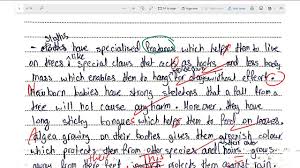 Sloths
- sloths have specialised features which help them to live
on trees like special claws that act as hooks and less body
mass which enables them to hang for days without effort.
Newborn babies have strong skeletons that a fall from a
tree will not cause any harm. Moreover, they have
long sticky tongues which help them to feed on leaves.
Algea growing on their bodies gives them greenish colour
which protects them from other species and
away from their feet protects them against rain.